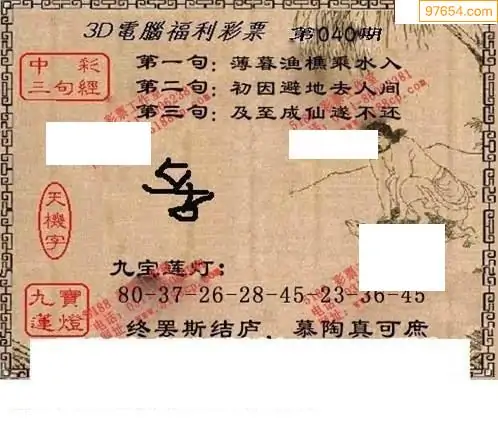 97654.com
3D電腦福利彩票 第040期
中彩
三句經
第一句：薄暮渔樵乘水入
第二句：初因避地去人间
第三句：及至成仙遂不还
天機字
九宝莲灯：
九寶蓮燈
80-37-26-28-45-23-36-45
终罢斯结庐，慕陶真可庶